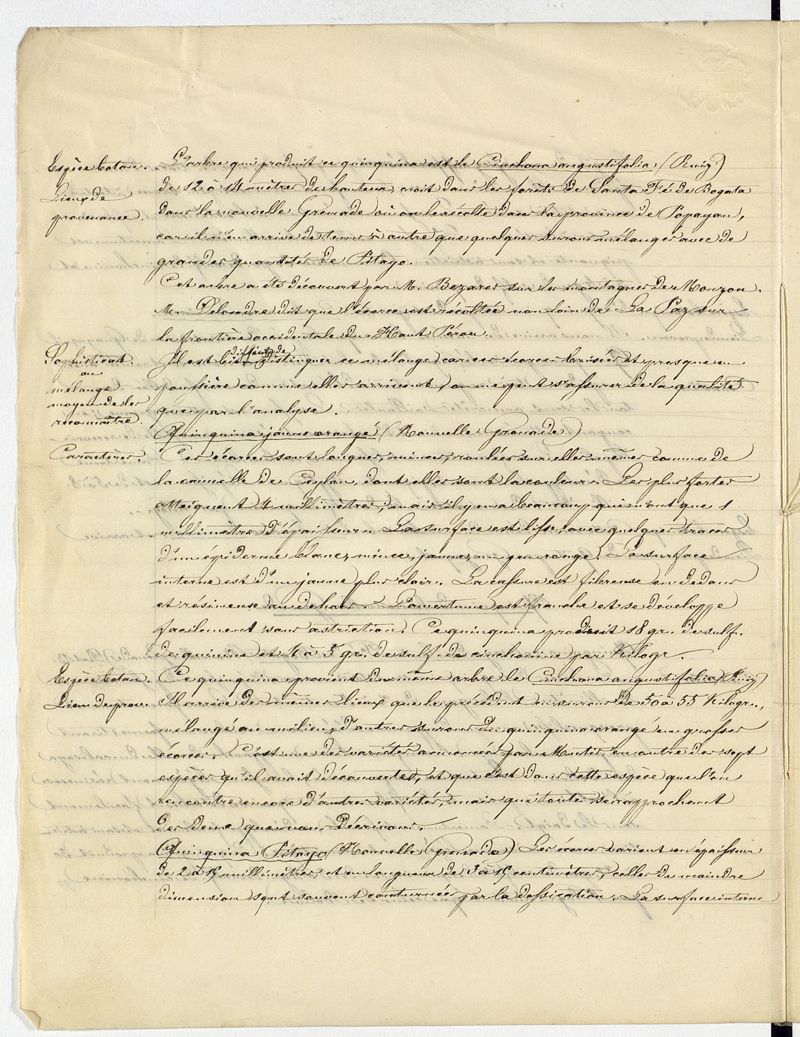 Espèce botan. L'arbre qui produit ce quinquina est le Cinchona angustifolia (Ruiz)
Lieux de de 12 à 14 mètres de hauteur, croit dans les forêts de Santa-Fé de Bogata
provenance. dans la nouvelle Grenade où on le récolte dans la province de Popayan,
car il n'en arrive de tems à autre que quelques surons mélangés avec de
grandes quantités de Pitayo.
Cet arbre a été découvert par M. Bezares sur les montagnes de Monzon.
M. Delondre dit que l'écorce est récoltée non loin de La Paz sur
la frontière occidentale du Haut Pérou.
Sophisticat. Il est difficile de distinguer ce mélange, car ces écorces brisées et presque en
ou
mélange poussière comme elles arrivent, on ne peut s'assurer de la qualité
moyen de les
reconnaître. que par l'analyse.
Quinquina jaune orangé (Nouvelle Grenade)
Caractères. Ces écorces sont longues, minces, roulées sur elles mêmes comme de
la cannelle de Ceylan, dont elles ont la couleur. Les plus fortes
atteignent 4 millimètres, mais il y en a beaucoup qui n'ont que 1
millimètre d'épaisseur. La surface est lisse, avec quelques traces
d'un épiderme blanc, mince, jaune, un peu orangé. La surface
interne est d'un jaune plus clair. La cassure est fibreuse en dedans
et résineuse au dehors. L'amertume est franche et se développe
facilement sans astriction. Ce quinquina produit 18 gr. de sulf.
de quinine et 4 à 5 gr. de sulf. de cinchonine par Kilogr.
Espèce botan. Ce quinquina provient du même arbre le Cinchona angustifolia (Ruiz)
Lieu de prov. Il arrive des mêmes lieux que le précédent en surons de 50 à 55 Kilogr.,
mélangé au milieu d'autres surons de quinquina orangé en grosses
écorces. C'est une des variétés annoncées par Mutis, en outre des sept
espèces qu'il avait découvertes, et que c'est dans cette espèce que l'on
rencontre encore d'autres variétés, mais qui toutes se rapprochent
des deux que nous décrivons.
Quinquina Pitayo (Nouvelle Grenade) Les écorces varient en épaisseur
de 2 à 4 millimètres, et en longueur de 5 à 15 centimètres, celles de moindre
dimension sont souvent contournées par la dessication. La surface interne